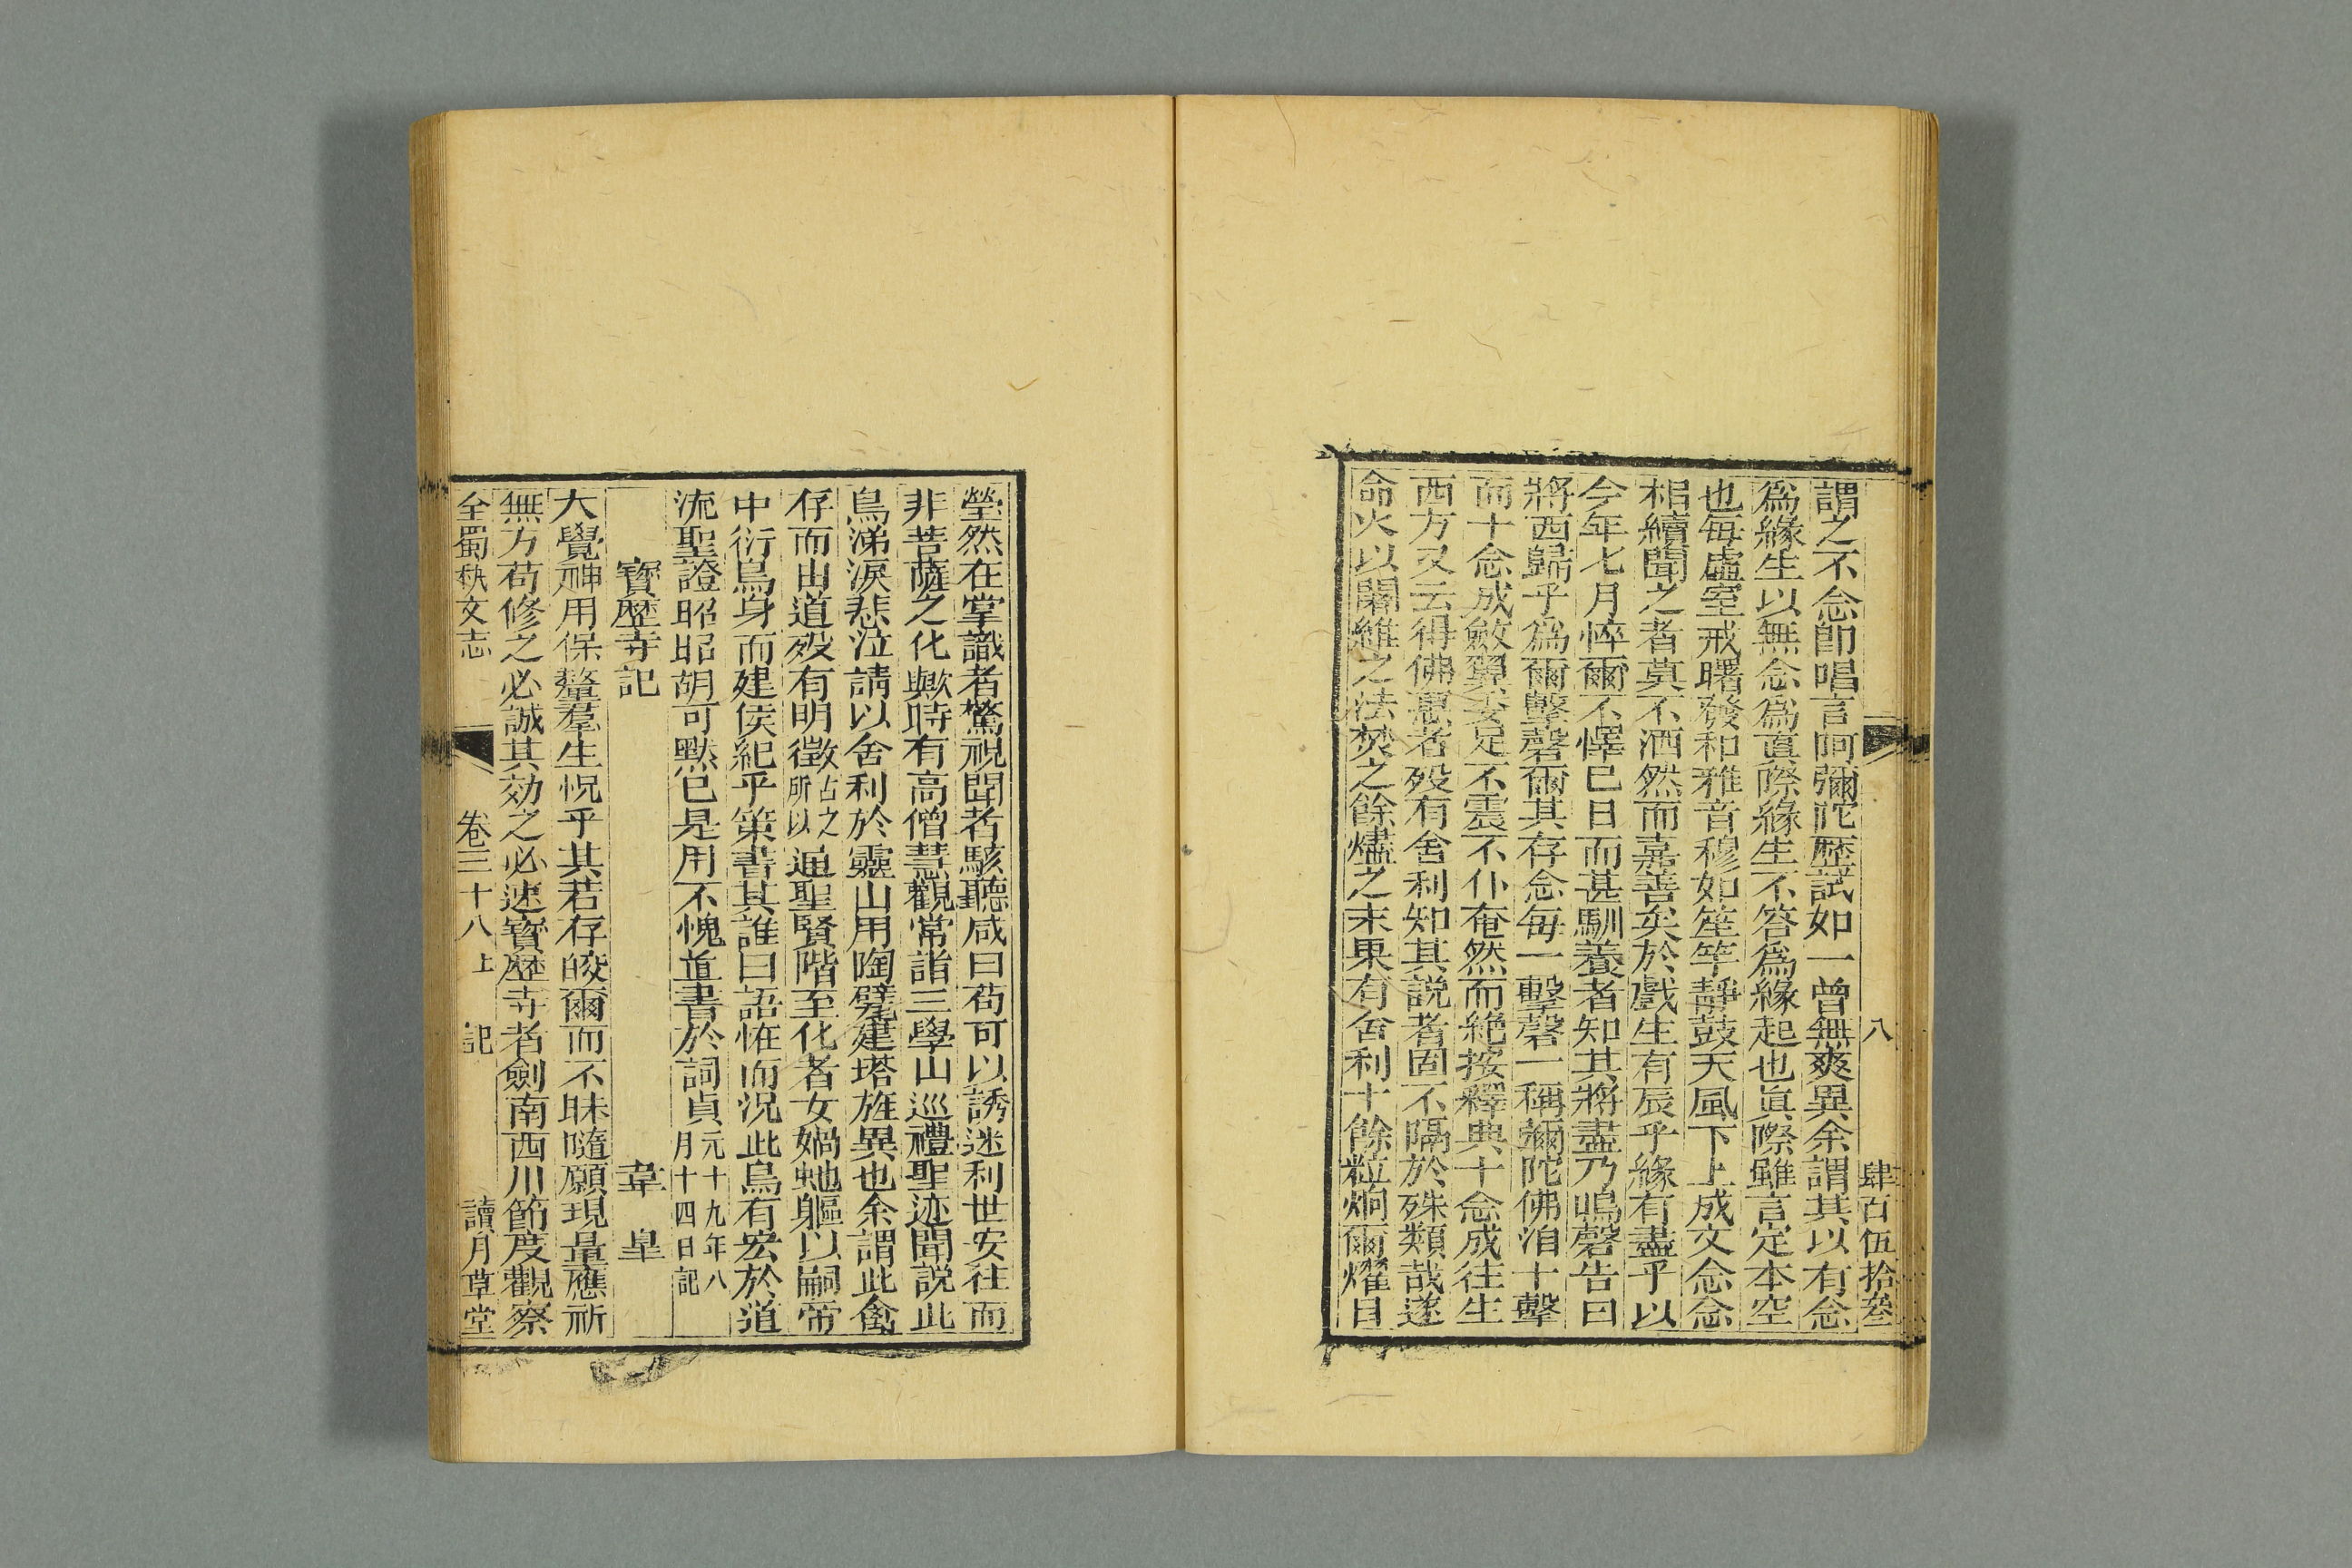 八 肆百伍拾叁
謂之不念卽唱言阿彌陀歷試如一曾無爽異余謂其以有念
爲緣生以無念爲眞際緣生不答爲緣起也眞際雖言定本空
也每虛室戒曙發和雅音穆如笙竽靜鼓天風下上成文念念
相續聞之者莫不洒然而嘉善矣於戲生有辰乎緣有盡乎以
今年七月悴爾不懌巳日而甚馴養者知其將盡乃鳴磬告曰
將西歸乎爲爾擊磬爾其存念每一擊磬一稱彌陀佛洎十擊
而十念成斂翼委足不震不仆奄然而絶按釋典十念成往生
西方又云得佛惠者歿有舍利知其説者固不隔於殊類哉遂
命火以闍維之法焚之餘燼之末果有舍利十餘粒炯爾燿目
瑩然在掌識者驚視聞者駭聽咸曰苟可以誘迷利世安往而
非菩薩之化歟時有高僧慧觀常詣三學山巡禮聖迹聞説此
鳥涕淚悲泣請以舍利於靈山用陶甓建塔旌異也余謂此禽
存而由道歿有明徵古之所以通聖賢階至化者女媧虵軀以嗣帝
中衍鳥身而建侯紀乎策書其誰曰語恠而況此鳥有宏於道
流聖證昭昭胡可默已是用不愧直書於詞貞元十九年八月十四日記
寶歷寺記 韋皐
大覺神用保釐羣生怳乎其若存皎爾而不昧隨願現量應祈
無方苟修之必誠其効之必速寶歷寺者劍南西川節度觀察
全蜀秇文志 卷三十八上 記 讀月草堂